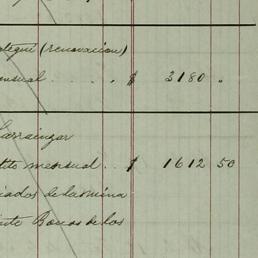 tegui (renovacion)
ensual . . . . $ 3180 "
Larrainzar
tito mensual . . $ 1612 50
iados de la mina
nte Bocas de los